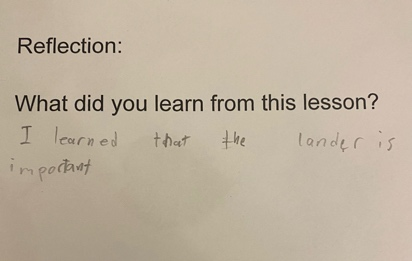 Reflection:
What did you learn from this lesson?
I learned that the lander is
important